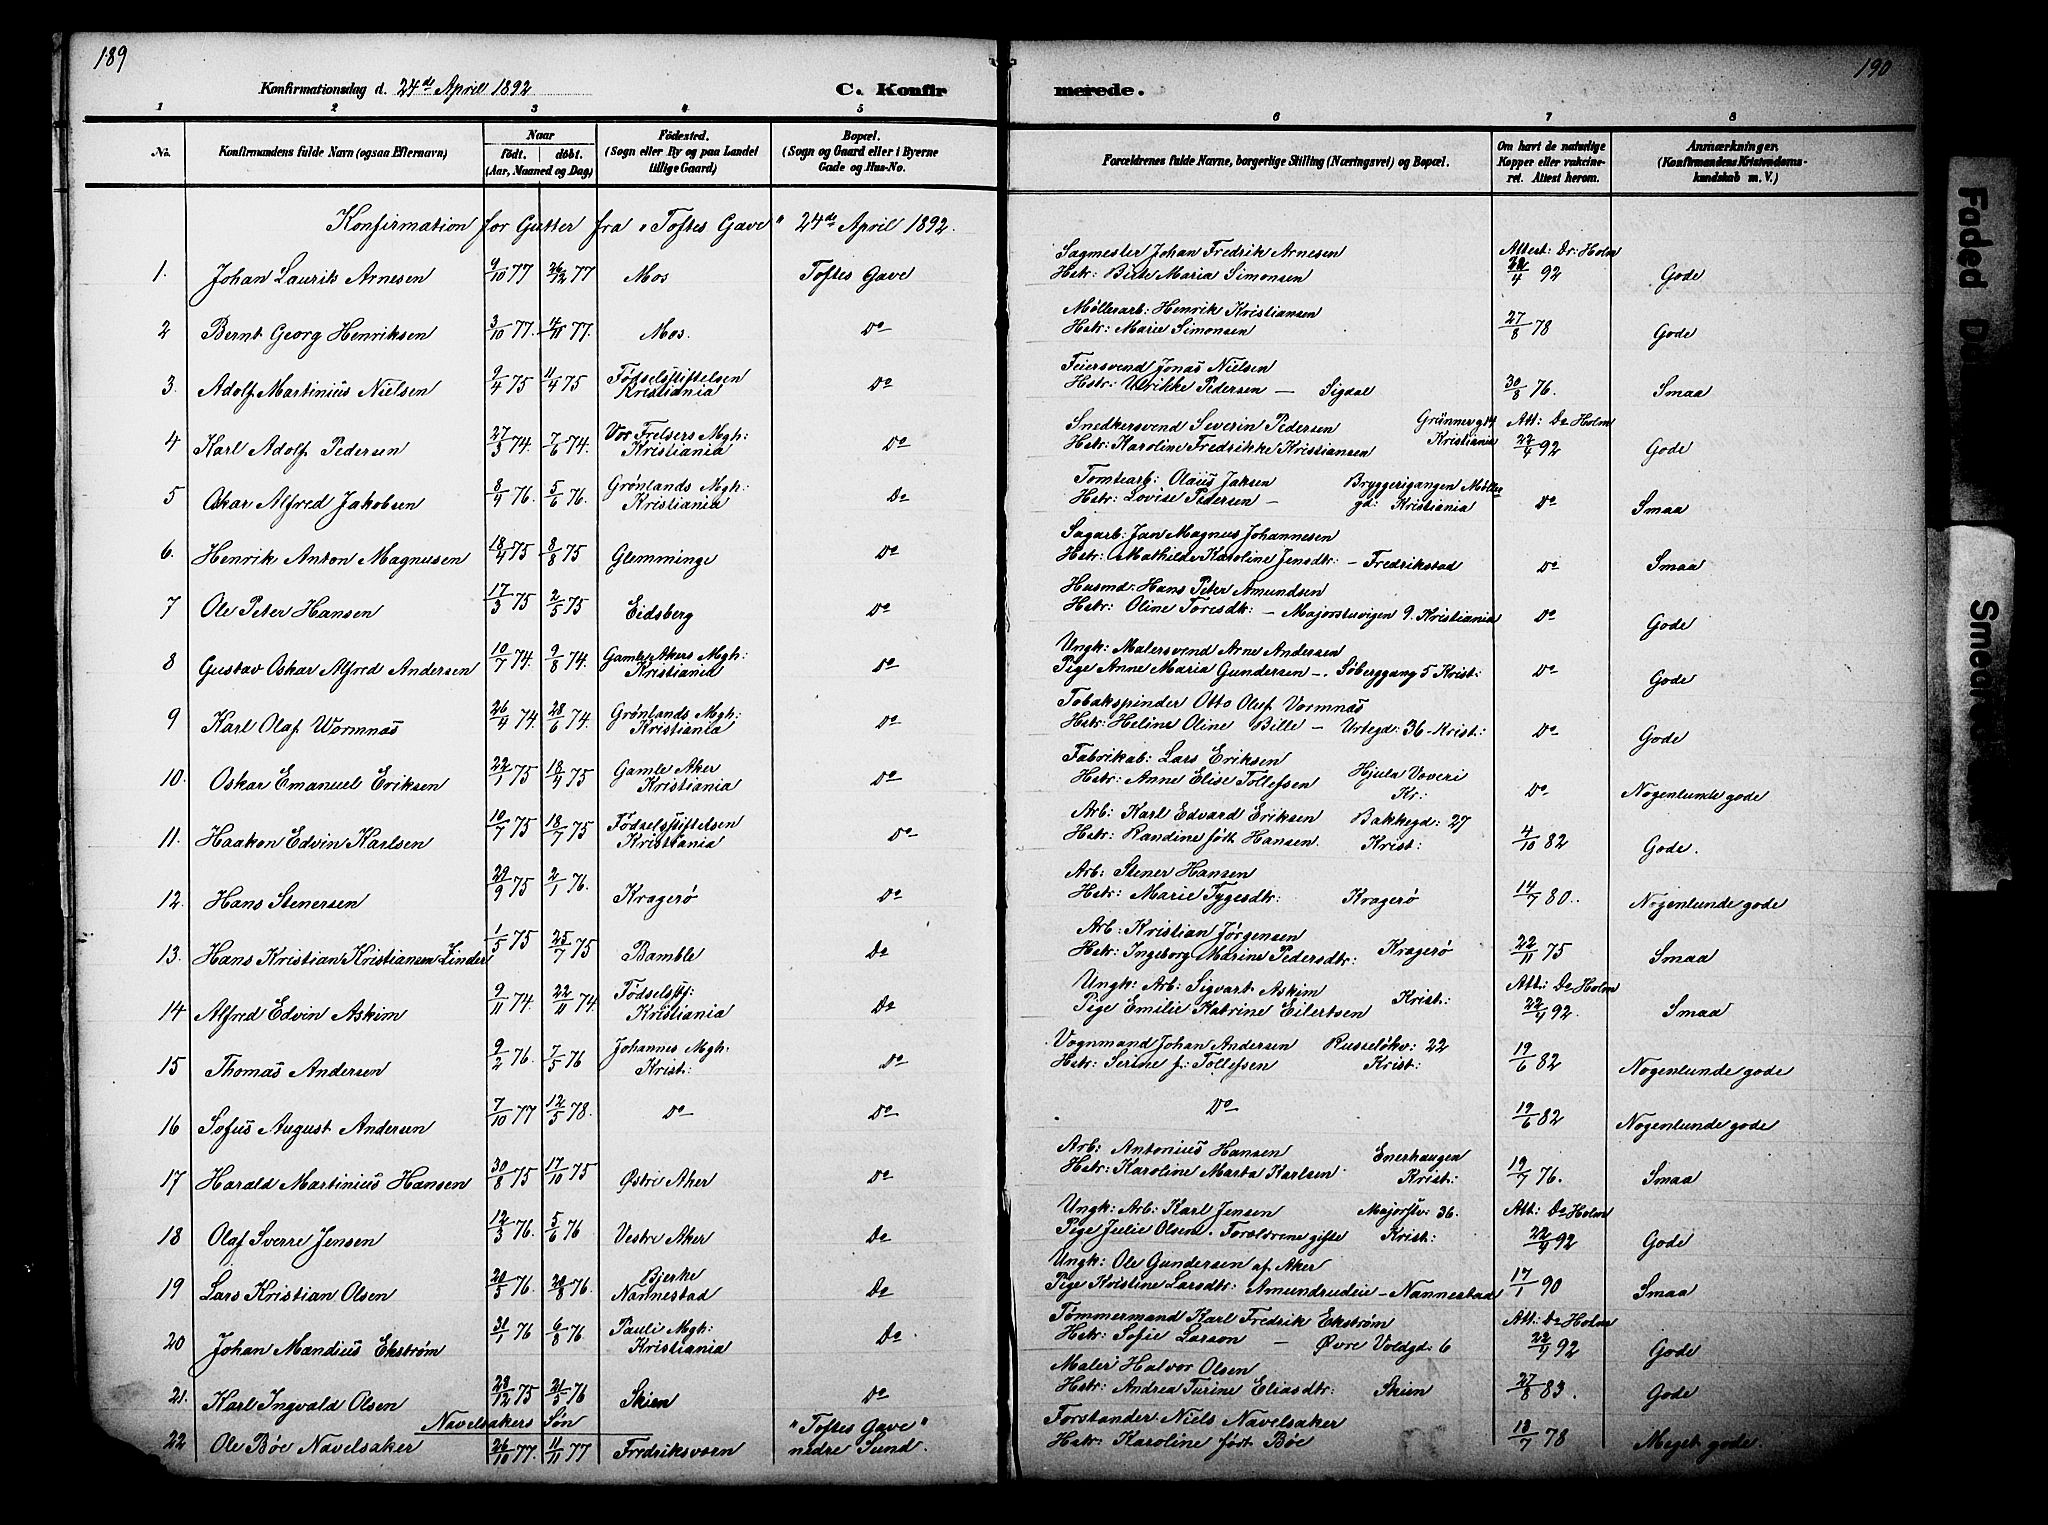 189
190
Konfirmationsdag d. 24de April 1892
C. Konfir
merede.
1 2 3 4 5 6 7 8
No. Konfirmandens fulde Navn (ogsaa Efternavn) Naar födt. döbt. (Aar, Maaned og Dag) Födested. (Sogn eller By og paa Landet tillige Gaard) Bopæl. (Sogn og Gaard eller i Byerne Gade og Hus-No. Forældrenes fulde Navne, borgerlige Stilling (Næringsvei) og Bopæl. Om havt de naturlige Kopper eller vakcineret. Attest herom. Anmærkninger. (Konfirmandens Kristendomskundskab m. V.)
Konfirmation for Gutter fra "Toftes Gave" 24de April 1892.
Sagmester Johan Fredrik Arnesen Attest: Dr: Holm
1. Johan Laurits Arnesen 9/10 77 26/12 77 Mos Toftes Gave Hstr: Birte Maria Simonsen 22/4 92 Gode
Møllerarb: Henrik Kristiansen
2 Bernt Georg Henriksen 3/10 77. 4/11 77. Mos. Do Hstr: Marie Simonsen 27/8 78 Gode
Feiersvend Jonas Nielsen
3. Adolf Martinius Nielsen 9/4 75 11/4 75 Fødselsstiftelsen Kristiania Do Hstr: Ulrikke Pedersen — Sigdal 30/8 76. Smaa
Snedkersvend Severin Pedersen Grünnergt Att: Dr Holm
4 Karl Adolf Pedersen 27/3 74. 7/6 74. Vor Frelsers Mgh: Kristiania Do Hstr: Karoline Fredrikke Kristiansen Kristiania 22/4 92 Gode
Tomtearb: Olaus Jaksen Bryggerigangen Møller
5 Oskar Alfred Jakobsen 8/4 76. 5/6 76. Grønlands Mgh: Kristiania Do Hstr: Lovise Pedersen — gd: Kristiania Do Smaa
Sagarb: Jan Magnus Johannesen
6. Henrik Anton Magnusen 18/4 75 8/8 75 Glemminge Do Hstr: Mathilde Karoline Jensdtr: — Fredrikstad Do Smaa
Husmd: Hans Peter Amundsen
7 Ole Peter Hansen 17/3 75 2/5 75 Eidsberg Do Hstr: Oline Toresdtr: — Majorstuvigen 9. Kristiania Do Gode
Ungk: Malersvend Arne Andersen
8 Gustav Oskar Alfred Andersen 10/7 74 9/8 74. Gamle Akers Mgh: Kristiania Do Pige Anne Maria Gundersen —. Søberggang 5 Krist: Do Gode
Tobakspinder Otto Oluf Vormnæs
9 Karl Olaf Wormnæs 26/4 74. 28/6 74. Grønlands Mgh: Kristiania Do Hstr: Heline Oline Bille — Urtegd: 36 - Krist: Do Gode
Fabrikab: Lars Eriksen
10. Oskar Emanuel Eriksen 22/1 75 18/4 75 Gamle Aker Kristiania Do Hstr: Anne Elise Tollefsen Hjula Voveri Kr: Do Nogenlunde gode
Arb: Karl Edvard Eriksen Bakkegd: 27
11. Haakon Edvin Karlsen 10/7 75 18/7 75 Fødselsstiftelsen Kristiania Do Hstr: Randine født Hansen. Krist: 4/10 82 Gode.
Arb: Stener Hansen
12. Hans Stenersen 29/9 75 2/1 76. Kragerø Do Hstr: Marie Tygesdtr: Kragerø 14/7 80. Nogenlunde gode
Arb: Kristian Jørgensen
13. Hans Kristian Kristiansen Linder 1/5 75 25/7 75 Bamble Do Hstr: Ingeborg Marine Pedersdtr: Kragerø 22/11 75 Smaa
Ungk: Arb: Sigvart Askim Att: Dr Holm
14 Alfred Edvin Askim 9/11 74. 22/11 74. Fødselsstf: Kristiania Do Pige Emilie Katrine Eilertsen Krist: 22/4 92. Smaa
Vognmand Johan Andersen Russeløkv: 22
15 Thomas Andersen 9/2 76. 7/5 76 Johannes Mgh: Krist: Do Hstr: Serine f: Tollefsen Krist: 19/6 82 Nogenlunde gode
16 Sofus August Andersen 7/10 77 12/5 78. Do Do Do 19/6 82 Nogenlunde gode
Arb: Antonius Hansen Enerhaugen
17 Harald Martinius Hansen 30/8 75 17/10 75 Østre Aker Do Hstr: Karoline Marta Karlsen Krist: 19/7 76. Smaa
Ungk: Arb: Karl Jensen Majorstv: 36. Att: Dr Holm
18 Olaf Sverre Jensen 12/3 76. 5/6 76 Vestre Aker Do Pige Julie Olsen. Forældrene gifte Krist: 22/4 92 Gode
Ungk: Ole Gundersen af Aker
19 Lars Kristian Olsen 20/5 76. 20/8 76. Bjerke Nannestad Do Pige Kristine Larsdtr: Amundrudeie — Nannestad 17/1 90 Smaa
Tømmermand Karl Fredrik Ekstrøm Att: Dr Holm
20 Johan Mandius Ekstrøm 31/1 76 6/8 76. Pauli Mgh: Kristiania Do Hstr: Sofie Larson — Øvre Voldgd: 6 22/4 92 Gode
Maler Halvor Olsen
21. Karl Ingvald Olsen 28/12 75 21/5 76 Skien Do Hstr: Andrea Turine Eliasdtr: Skien 27/8 83. Gode
Navelsakers Søn "Toftes Gave" Forstander Niels Navelsaker
22 Ole Bøe Navelsaker 26/10 77. 11/11 77 Fredriksværn nedre Sund. Hstr: Karoline født Bøe 13/7 78 Meget gode.
Faded
Smeared